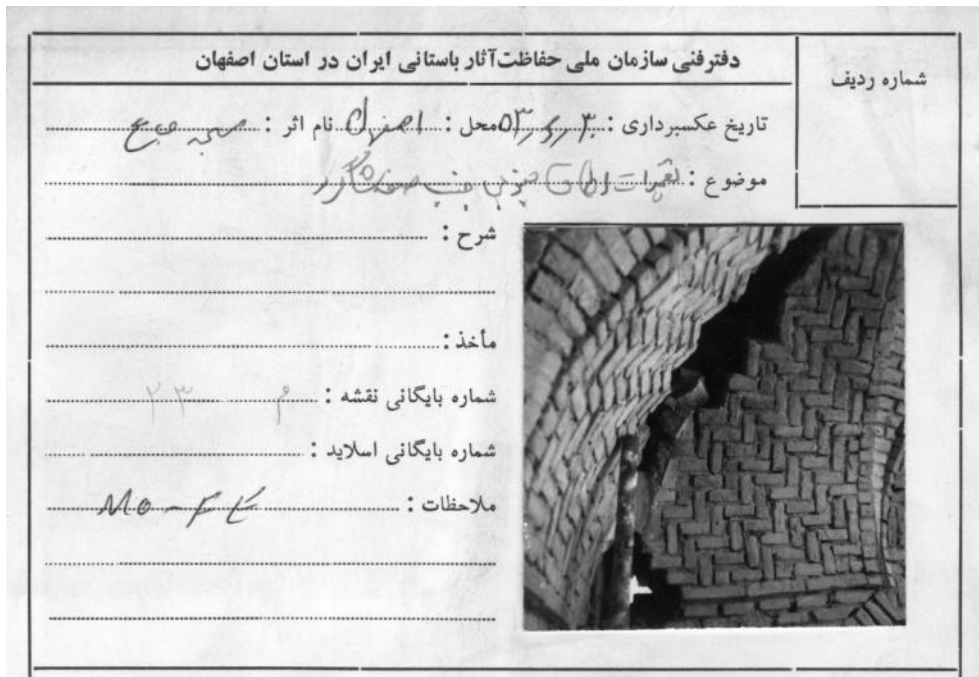 دفترفنی سازمان ملی حفاظت‌آثار باستانی ایران در استان اصفهان
شماره ردیف
تاریخ عکسبرداری : محل : اصفهان نام اثر : مسجد جامع
موضوع : تعمیرات
شرح :
مأخذ :
شماره بایگانی نقشه : م ۲۳
شماره بایگانی اسلاید :
ملاحظات :